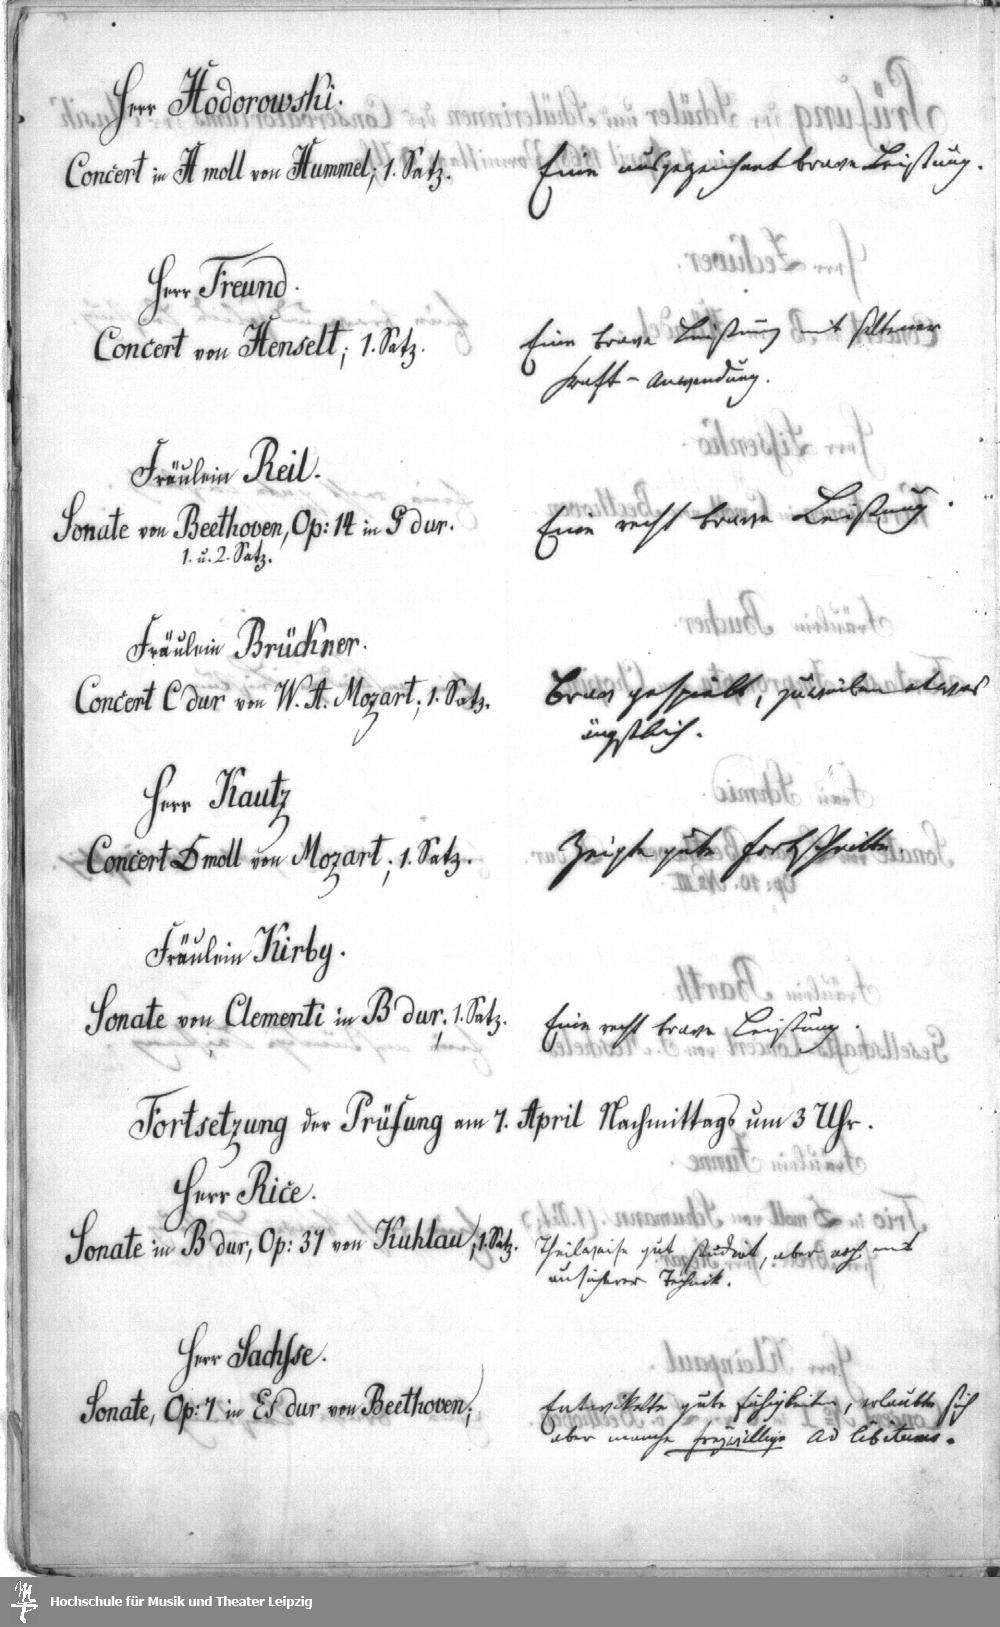 Herr Hodorowski.
Concert in H moll von Hummel; 1. Satz.
Eine ausgezeichnet brave Leistung.
Herr Freund.
Concert von Henselt; 1. Satz.
Eine brave Leistung mit seltener
Kraft-Anwendung.
Fräulein Reil.
Sonate von Beethoven, Op: 14 in G dur.
1. u. 2. Satz.
Eine recht brave Leistung.
Fräulein Brückner.
Concert C dur von W. A. Mozart; 1. Satz.
Brav gespielt, zuweilen etwas
ängstlich.
Herr Kautz
Concert D moll von Mozart; 1. Satz.
Zeigte gute Fortschritte.
Fräulein Kirby.
Sonate von Clementi in B dur; 1. Satz.
Eine recht brave Leistung.
Fortsetzung der Prüfung am 7. April Nachmittags um 3 Uhr.
Herr Rice.
Sonate in B dur, Op: 37 von Kuhlau; 1. Satz.
Theilweise gut studirt, aber noch mit
unsicherer Technik.
Herr Sachse.
Sonate, Op: 7 in Es dur von Beethoven;
Entwickelte gute Fähigkeiten, erlaubte sich
aber manche freiwillige ad libitums.
Hochschule für Musik und Theater Leipzig